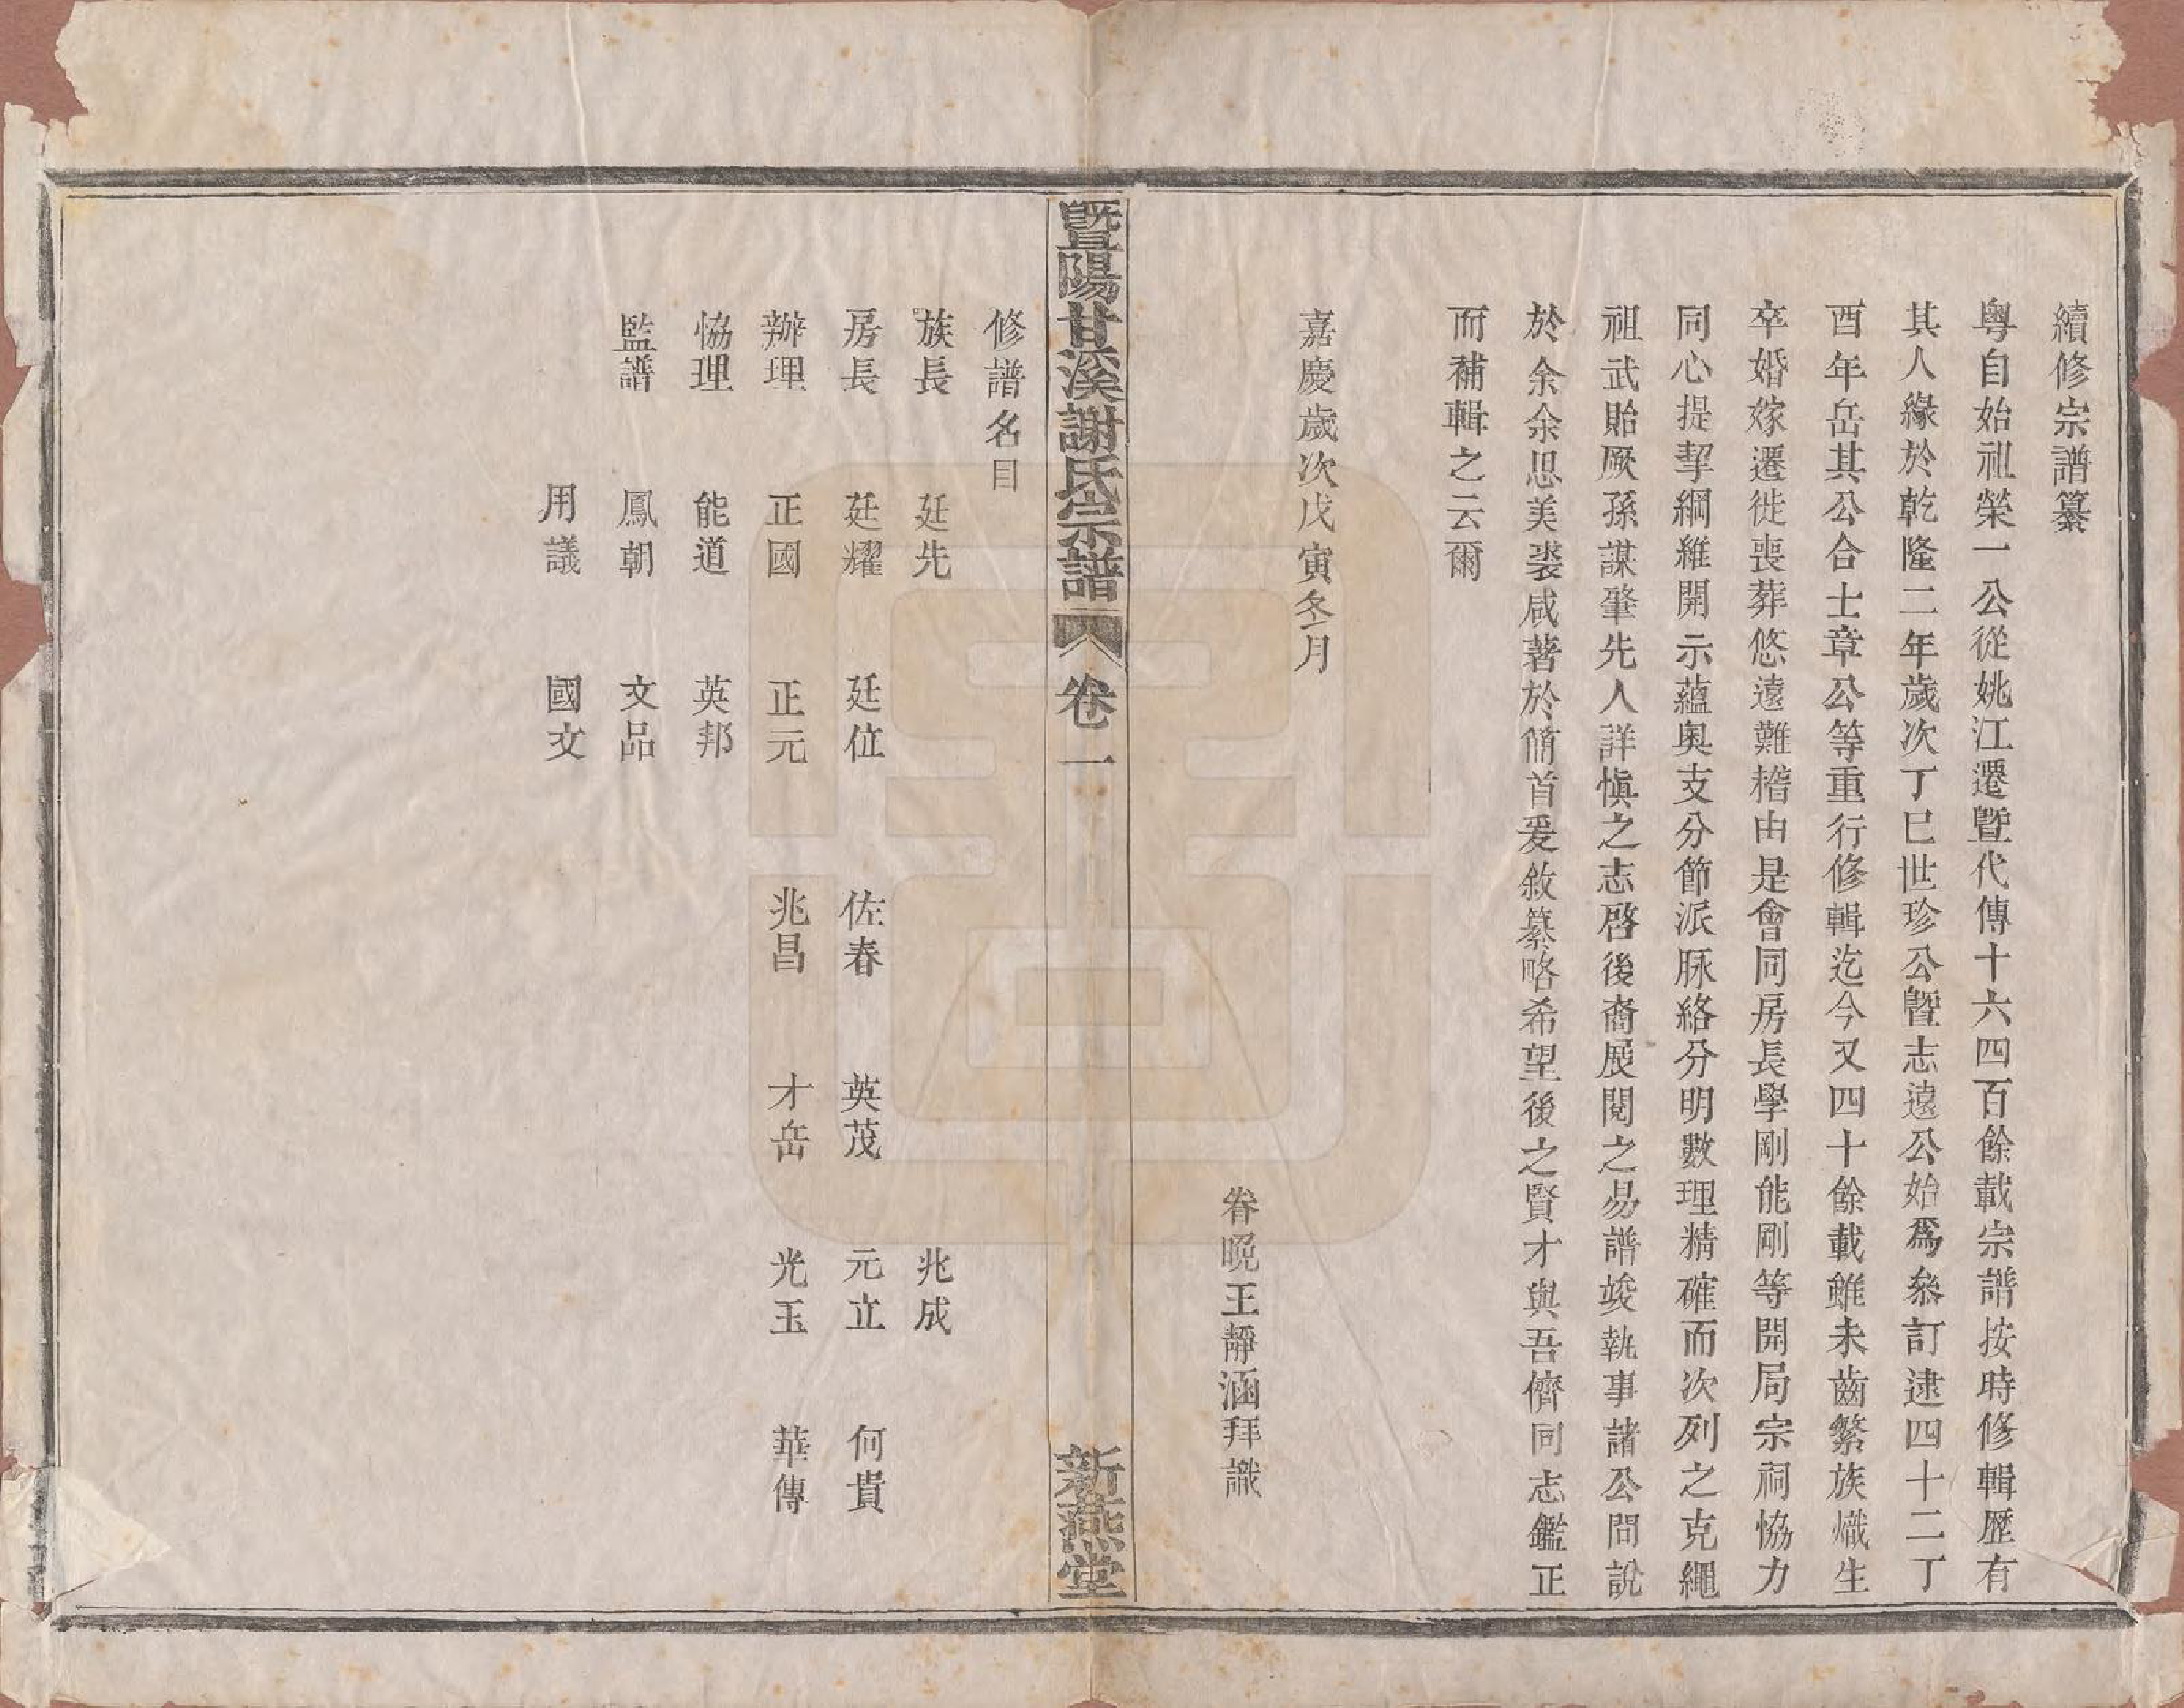 續修宗譜纂
粵自始祖榮一公從姚江遷暨代傳十六四百餘載宗譜按時修輯歷有
其人緣於乾隆二年歲次丁巳世珍公暨志遠公始爲叅訂逮四十二丁
酉年岳其公合士章公等重行修輯迄今又四十餘載雖未齒繁族熾生
卒婚嫁遷徙喪葬悠遠難稽由是會同房長學剛能剛等開局宗祠恊力
同心提挈綱維開示蘊奧支分節派脉絡分明數理精確而次列之克繩
祖武貽厥孫謀肇先人詳愼之志啓後裔展閱之易譜竣執事諸公問說
於余余思美裘咸著於簡首爰敘纂略希望後之賢才與吾儕同志鑑正
而補輯之云爾
嘉慶歲次戊寅冬月
眷晚王靜涵拜識
暨陽甘溪謝氏宗譜 卷一 新燕堂
修譜名目
族長 廷先 兆成
房長 廷耀 廷位 佐春 英茂 元立 何貴
辦理 正國 正元 兆昌 才岳 光玉 華傳
恊理 能道 英邦
監譜 鳳朝 文品
用議 國文